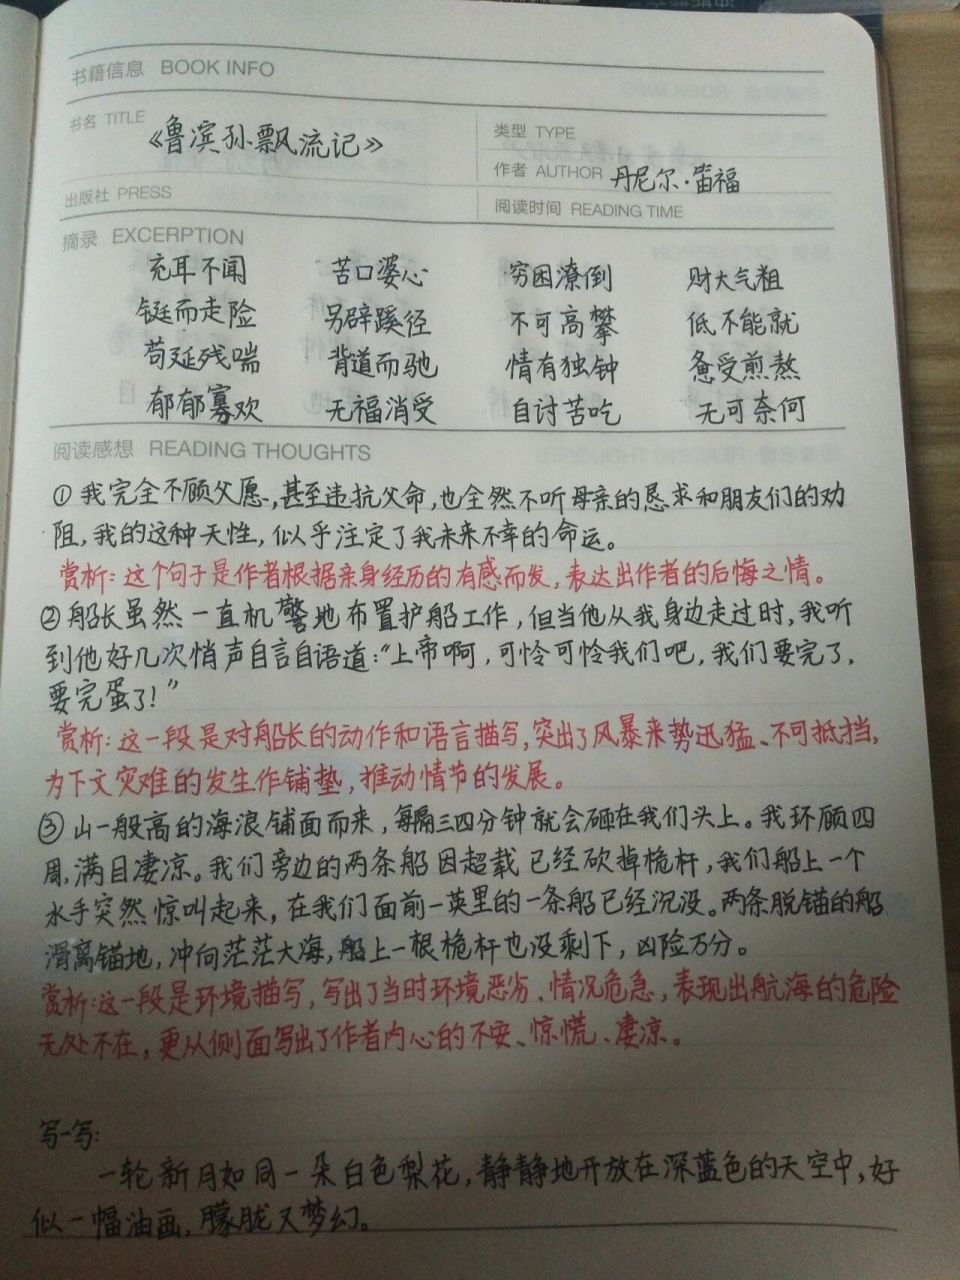 书籍信息 BOOK INFO
书名 TITLE 《鲁滨孙飘流记》
类型 TYPE
作者 AUTHOR 丹尼尔·笛福
出版社 PRESS
阅读时间 READING TIME
摘录 EXCERPTION
充耳不闻 苦口婆心 穷困潦倒 财大气粗
铤而走险 另辟蹊径 不可高攀 低不能就
苟延残喘 背道而驰 情有独钟 备受煎熬
郁郁寡欢 无福消受 自讨苦吃 无可奈何
阅读感想 READING THOUGHTS
① 我完全不顾父愿,甚至违抗父命,也全然不听母亲的恳求和朋友们的劝
阻,我的这种天性,似乎注定了我未来不幸的命运。
赏析:这个句子是作者根据亲身经历的有感而发,表达出作者的后悔之情。
② 船长虽然一直机警地布置护船工作,但当他从我身边走过时,我听
到他好几次悄声自言自语道:“上帝啊,可怜可怜我们吧,我们要完了,
要完蛋了!”
赏析:这一段是对船长的动作和语言描写,突出了风暴来势迅猛、不可抵挡,
为下文灾难的发生作铺垫,推动情节的发展。
③ 山一般高的海浪铺面而来,每隔三四分钟就会砸在我们头上。我环顾四
周,满目凄凉。我们旁边的两条船因超载已经砍掉桅杆,我们船上一个
水手突然惊叫起来,在我们面前一英里的一条船已经沉没。两条脱锚的船
滑离锚地,冲向茫茫大海,船上一根桅杆也没剩下,凶险万分。
赏析:这一段是环境描写,写出了当时环境恶劣、情况危急,表现出航海的危险
无处不在,更从侧面写出了作者内心的不安、惊慌、凄凉。
写一写:
一轮新月如同一朵白色梨花,静静地开放在深蓝色的天空中,好
似一幅油画,朦胧又梦幻。